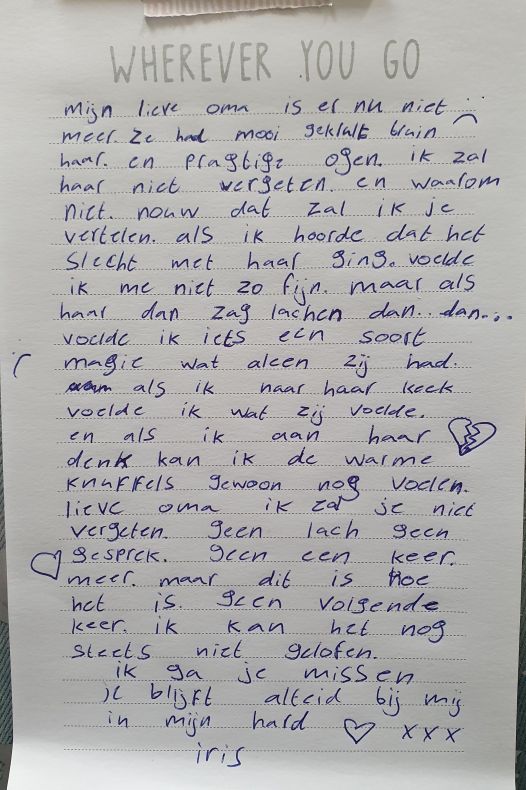 WHEREVER YOU GO
mijn lieve oma is er nu niet
meer. ze had mooi geklult bruin
haar. en pragtige ogen. ik zal
haar niet vergeten. en waarom
niet. nouw dat zal ik je
vertelen. als ik hoorde dat het
slecht met haar ging. voelde
ik me niet zo fijn. maar als
haar dan zag lachen dan.. dan...
voelde ik iets een soort
magie wat aleen zij had.
als ik naar haar keek
voelde ik wat zij voelde.
en als ik aan haar
denk kan ik de warme
knuffels gewoon nog voelen.
lieve oma ik zal je niet
vergeten. geen lach geen
gesprek. geen een keer.
meer. maar dit is hoe
het is. geen volgende
keer. ik kan het nog
steets niet gelofen.
ik ga je missen
je blijft alteid bij mij
in mijn hard xxx
iris